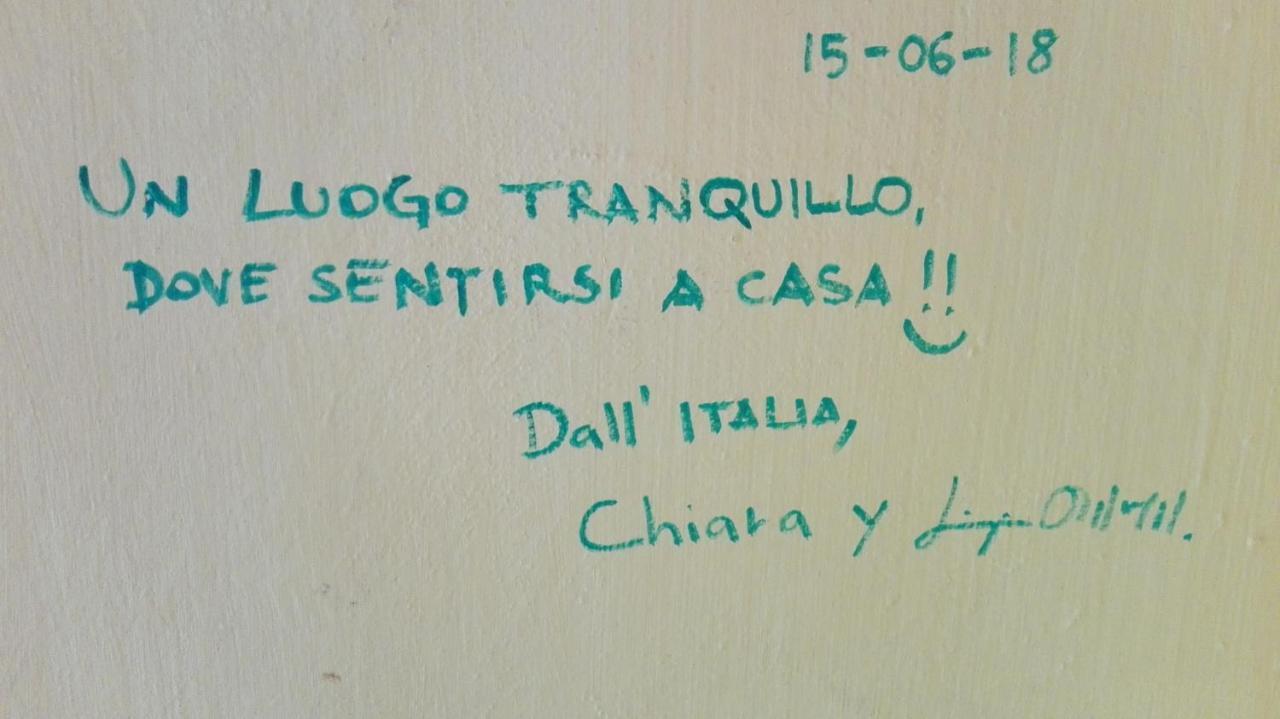 15-06-18
UN LUOGO TRANQUILLO,
DOVE SENTIRSI A CASA!!
Dall'ITALIA,
Chiara y